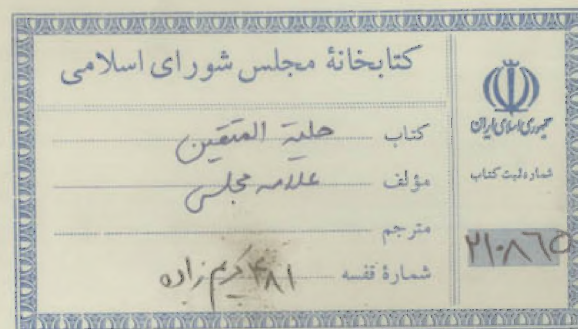 کتابخانهٔ مجلس شورای اسلامی
کتاب حلیة المتقین
مؤلف علامه مجلسی
مترجم
شمارهٔ قفسه ۴۸۱ کریم زاده
جمهوری اسلامی ایران
شماره ثبت کتاب
۲۱۰۸۶۵